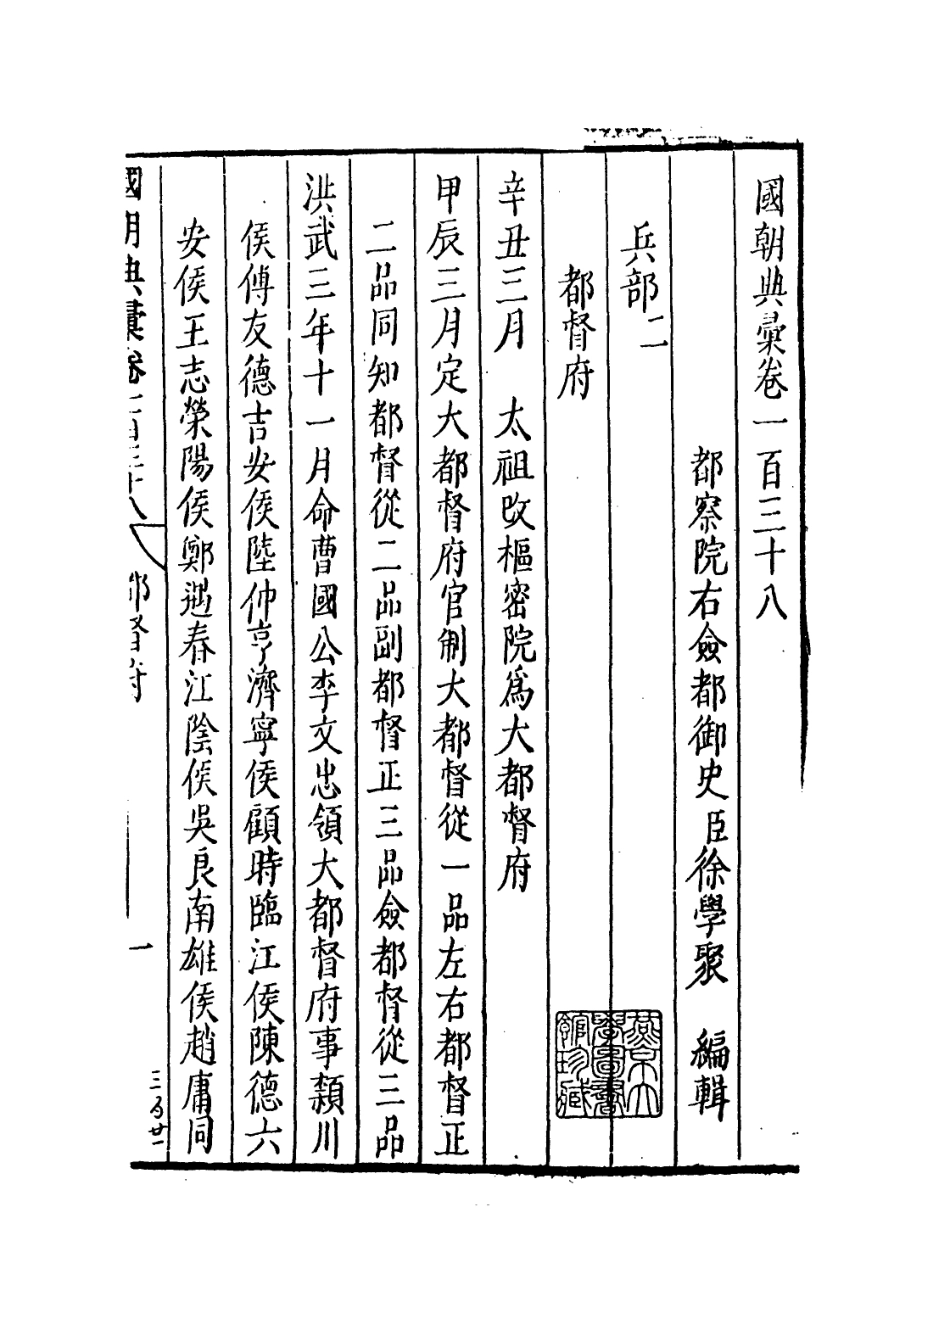 國朝典彙卷一百三十八
都察院右僉都御史臣徐學聚 編輯
兵部二
都督府
辛丑三月 太祖改樞密院爲大都督府
甲辰三月定大都督府官制大都督從一品左右都督正
二品同知都督從二品副都督正三品僉都督從三品
洪武三年十一月命曹國公李文忠領大都督府事潁川
侯傅友德吉安侯陸仲亨濟寧侯顧時臨江侯陳德六
安侯王志滎陽侯鄭遇春江陰侯吳良南雄侯趙庸同
國朝典彙卷一百三十八 都督府 一
燕京大學圖書館珍藏